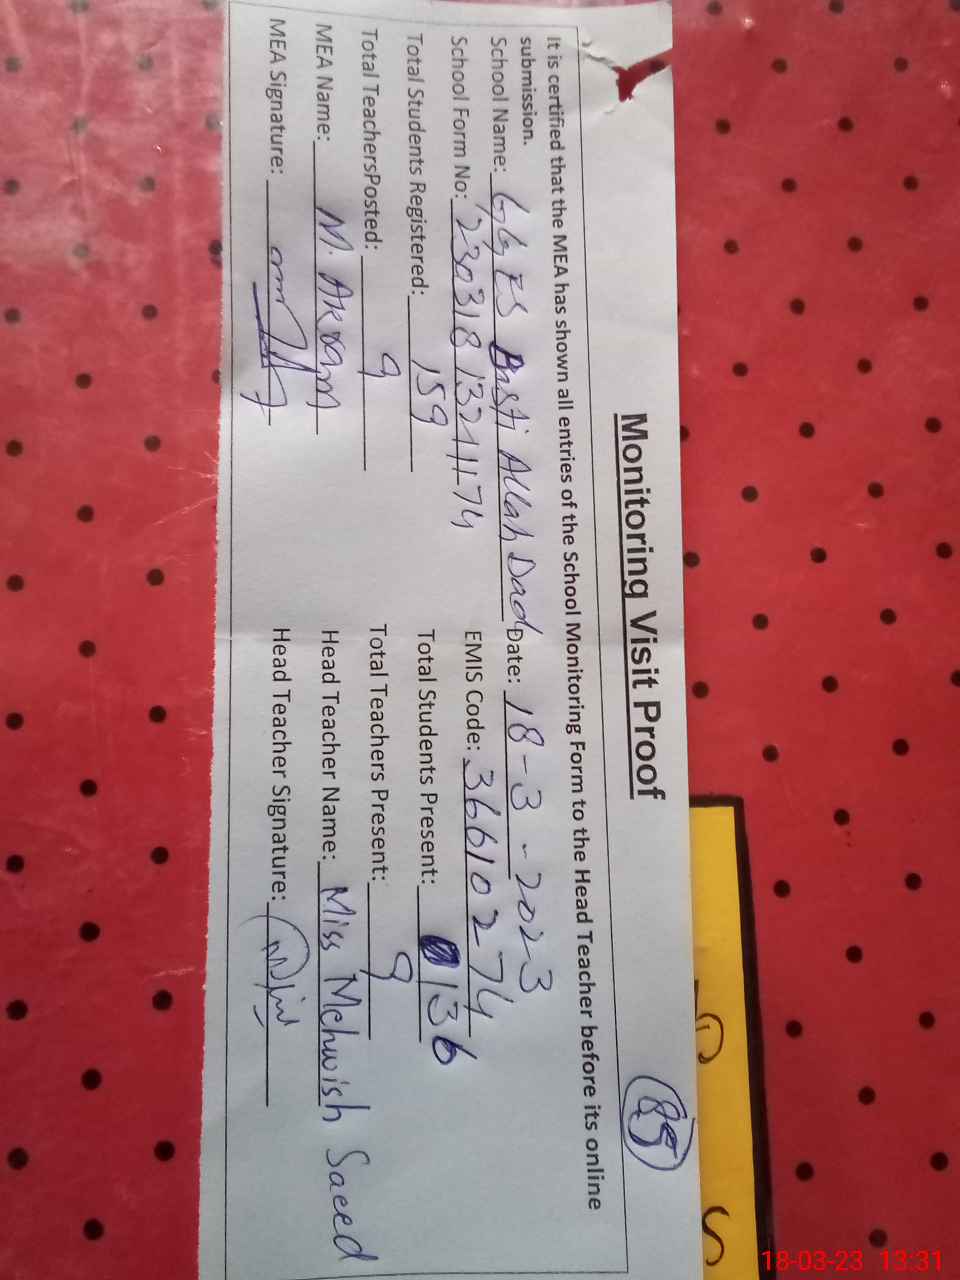 Monitoring Visit Proof
85
It is certified that the MEA has shown all entries of the School Monitoring Form to the Head Teacher before its online
submission.
School Name: GGES Basti Allah Dad Date: 18-3-2023
School Form No: 2303181321174 EMIS Code: 36610274
Total Students Registered: 159 Total Students Present: 136
Total TeachersPosted: 9 Total Teachers Present: 9
MEA Name: M. Akram Head Teacher Name: Miss Mehwish Saeed
MEA Signature: Head Teacher Signature:
18-03-23 13:31